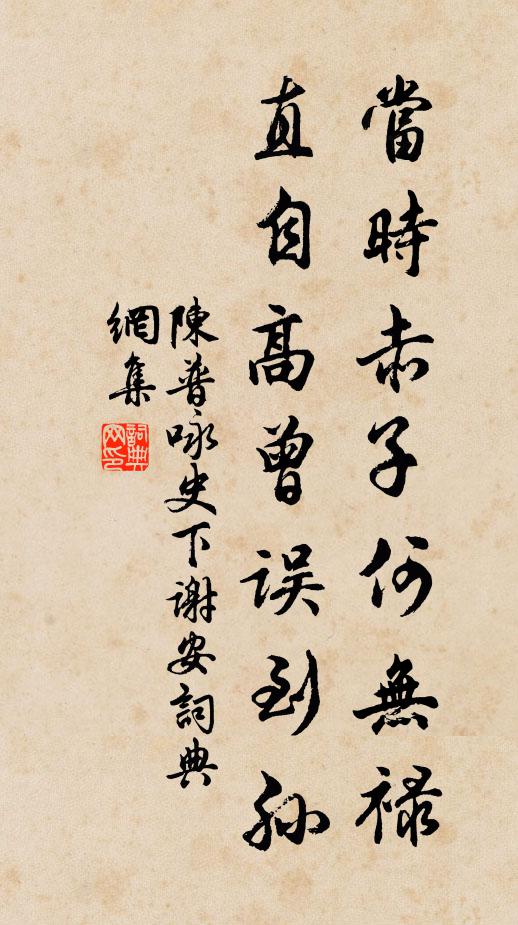 當時赤子何無禄
直自高曾誤到孙
陳普咏史下谢安詞典
網集
詞典
网印